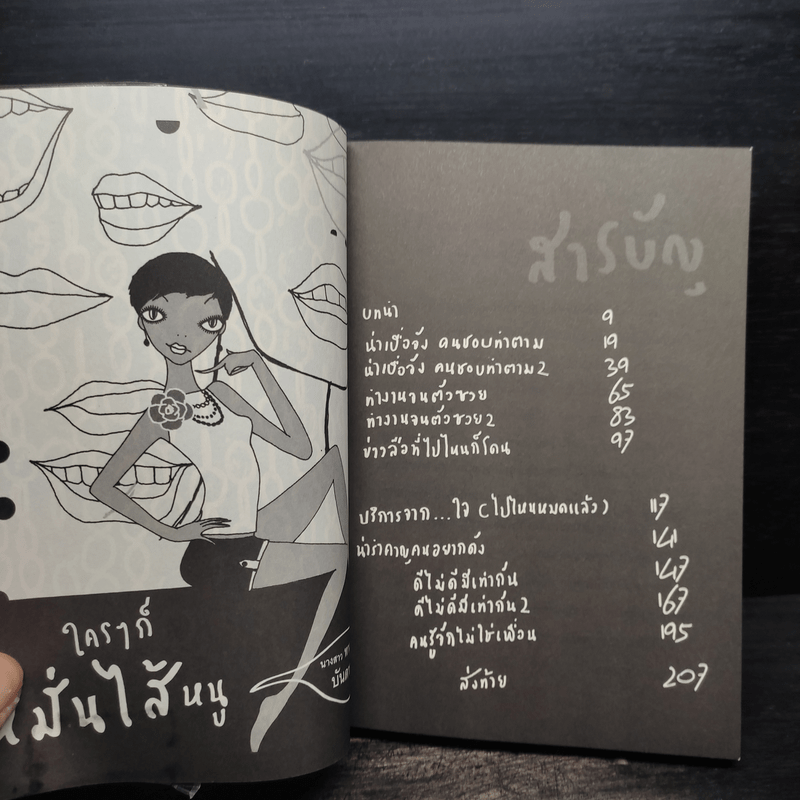 ใครๆก็
หมั่นไส้หนู
นางสาว
สารบัญ
บทนำ 9
น่าเบื่อจัง คนชอบทำตาม 19
น่าเบื่อจัง คนชอบทำตาม 2 39
ทำงานจนตัวซวย 65
ทำงานจนตัวซวย 2 83
ข่าวลือที่ไปไหนก็โดน 97
บริการจาก...ใจ (ไปไหนหมดแล้ว) 117
น่ารำคาญคนอยากดัง 141
ดีไม่ดีมีเท่ากัน 147
ดีไม่ดีมีเท่ากัน 2 167
คนรู้จักไม่ใช่เพื่อน 195
สั่งท้าย 207